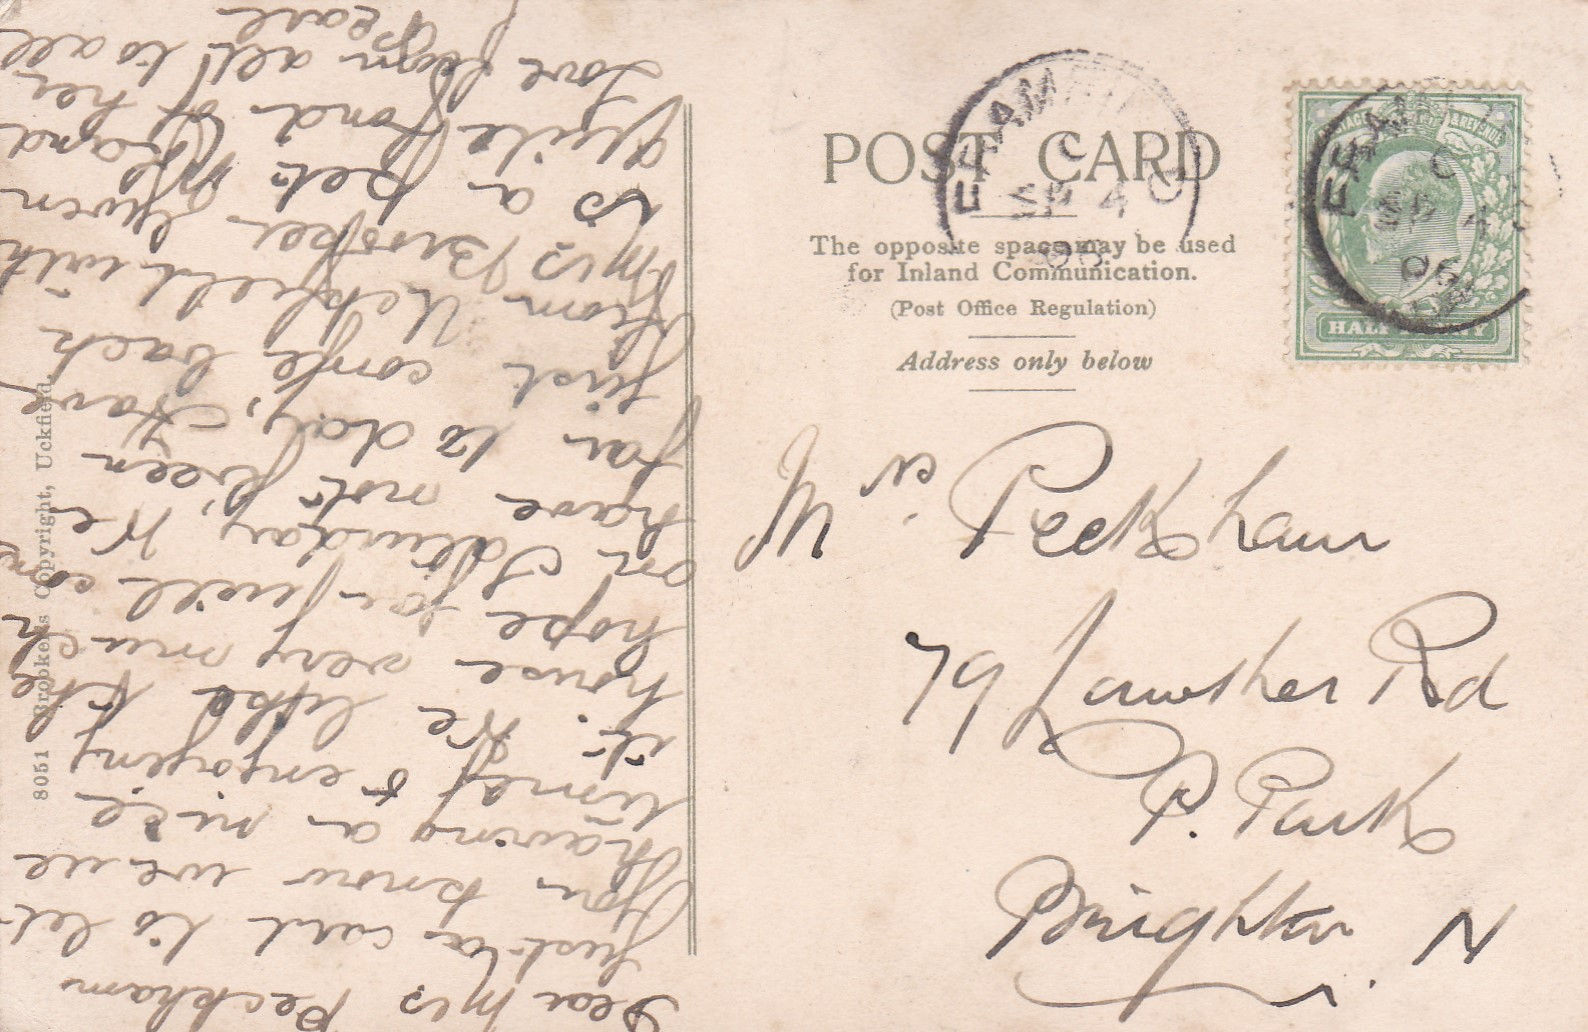 POST CARD
The opposite space may be used
for Inland Communication.
(Post Office Regulation)
Address only below
POSTAGE & REVENUE
HALF PENNY
FRAMFI
C
SP 4
06
Mrs. Peckham
79 Lowther Rd
P. Park
Brighton. N
8051 Brooker's Copyright, Uckfield
Dear Mrs Peckham
Just a card to let
you know we are
having a nice
time & enjoying
it. We like the
house very much
hope you will come
on Saturday, We
have not been
far to day, Have
just come back
from Uckfield with
Mrs Brooker Gwen
is a pet
Quite fond of her
Love from all to all
Pearl